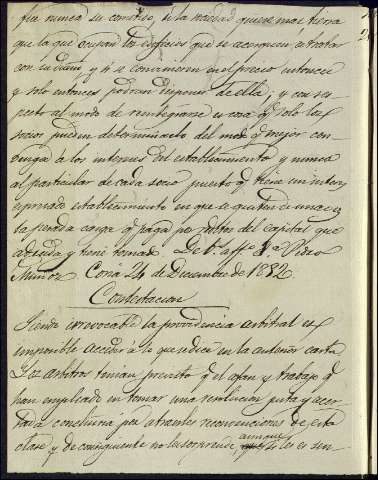 fue nunca su cometido, si la sociedad quiere mas tierra
que la que ocupan los edificios que se acerquen a tratar
con su dueño, y si se convinieren en el precio entonces
y solo entonces podran disponer de ella; y con res-
pecto al modo de reintegrarse es cosa q.e solo los
socios pueden determinarlo del modo q.e mejor con-
venga á los intereses del establecimiento y nunca
al particular de cada socio puesto q.e tiene un interes
apremiado establecimiento en que se quiten de una vez
la pesada carga q.e paga por reditos del capital que
adeuda y tiene tomado. De V. aff.o Pedro
Muñoz Coria 24 de Diciembre de 1832
Contestacion
Siendo irrevocable la providencia arbitral es
imposible acceder á lo que indica en la anterior carta.
Los arbitros tenian previsto q.e el afan y trabajo q.e
han empleado en tomar una resolucion justa y acer-
tada concluiria por atraerles reconvenciones de esta
clase y de consiguiente no les sorprende, aunque si les es sen-